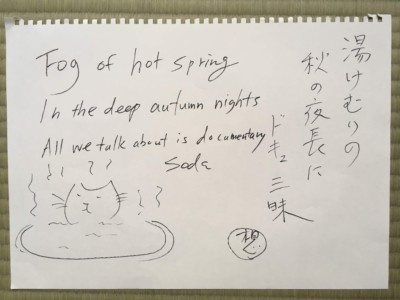 Fog of hot spring
In the deep autumn nights
All we talk about is documentary
Soda
湯けむりの
秋の夜長に
ドキュ三昧
想